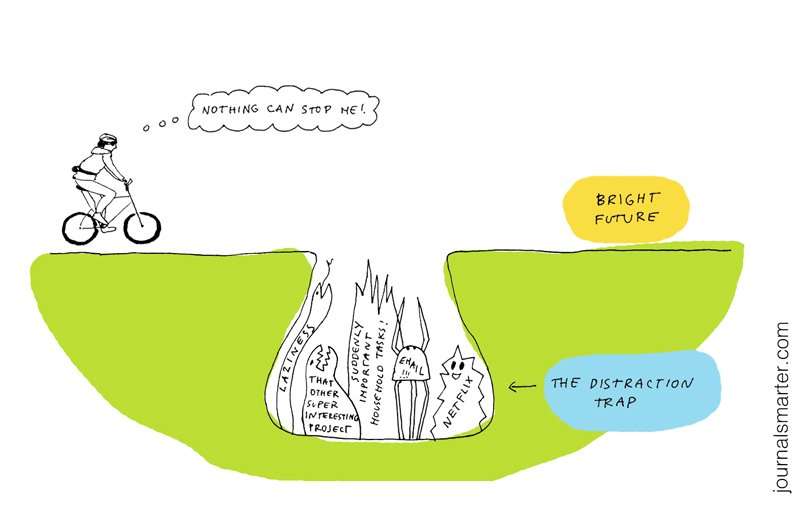 NOTHING CAN STOP ME!
BRIGHT
FUTURE
LAZINESS
THAT
OTHER
SUPER
INTERESTING
PROJECT
SUDDENLY
IMPORTANT
HOUSEHOLD TASKS!
EMAIL
!!!
NETFLIX
THE DISTRACTION
TRAP
journalsmarter.com